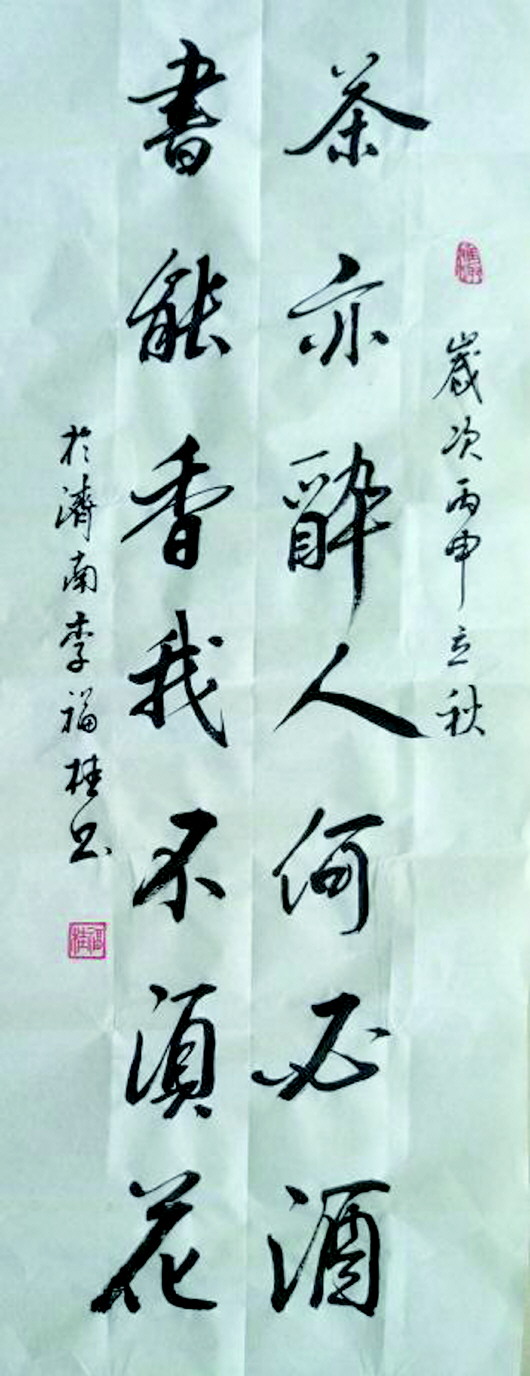 歲次丙申立秋
茶亦醉人何必酒
書能香我不須花
於濟南李福桂书
福桂